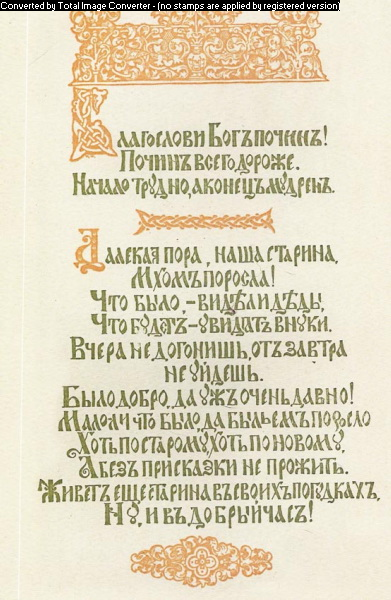 Converted by Total Image Converter - (no stamps are applied by registered version)
Благослови Богъ починъ!
Починъ всего дороже.
Начало трудно, а конецъ мудренъ.
Далекая пора, наша старина,
Мхомъ поросла!
Что было, – видѣли дѣды,
Что будетъ – увидятъ внуки.
Вчера не догонишь, отъ завтра
не уйдешь.
Было добро, да ужъ очень давно!
Мало ли что было да быльемъ поросло
Хоть по старому, хоть по новому,
А безъ присказки не прожить.
Живетъ еще старина въ своихъ погудкахъ,
Ну, и въ добрый часъ!